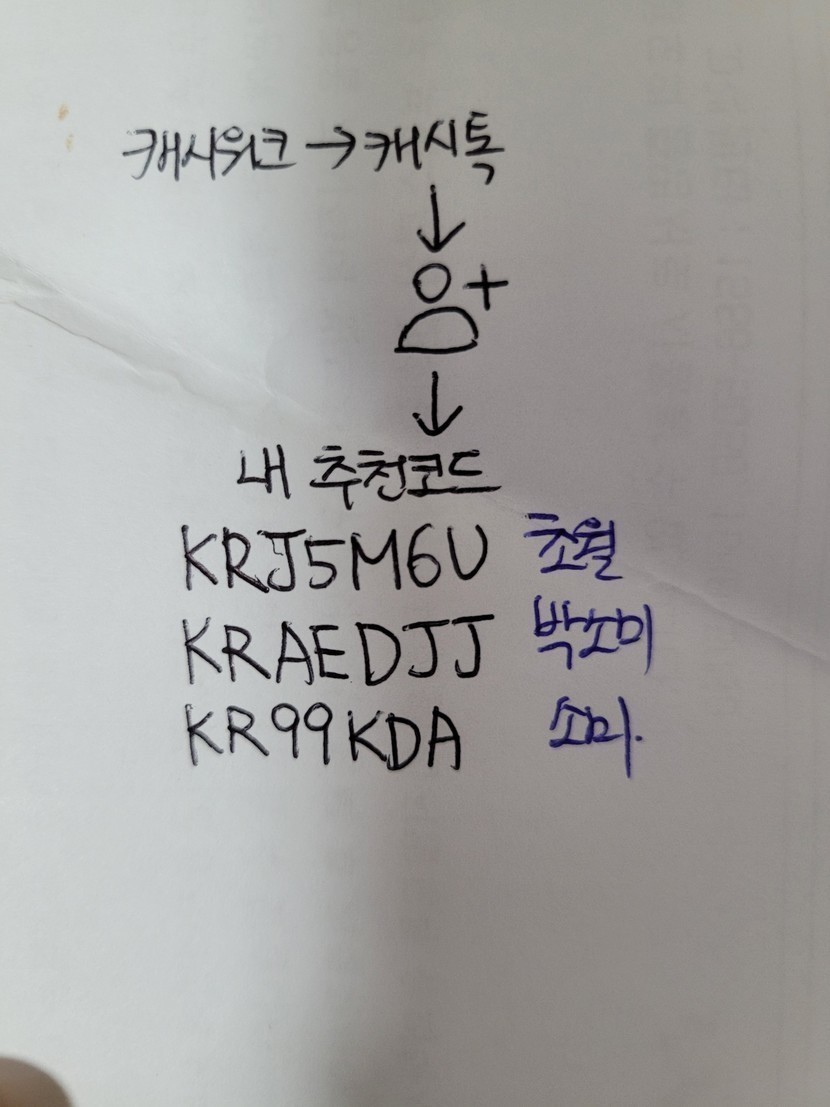 캐시워크 → 캐시톡
↓
+
↓
내 추천코드
KRJ5M6U 초월
KRAEDJJ 박소미
KR99KDA 소미.